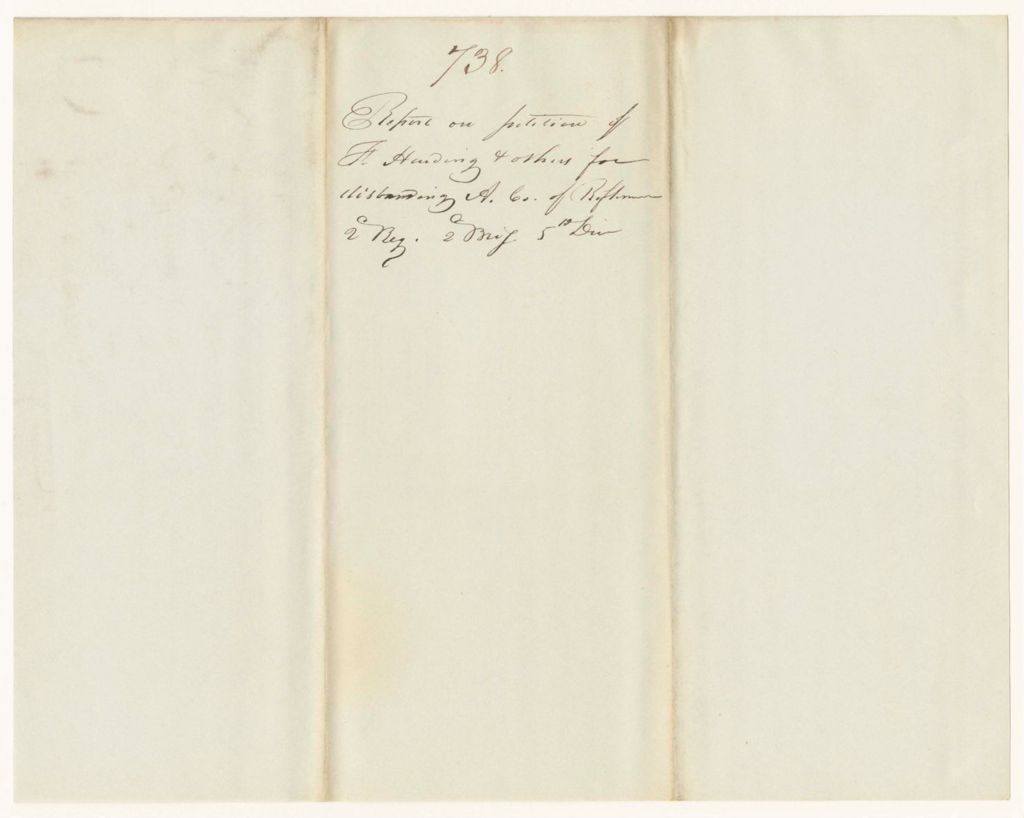 738.
Report on petition of
F. Harding & others for
disbanding A. Co. of Riflemen
2d Reg. 2d Brig 5th Div